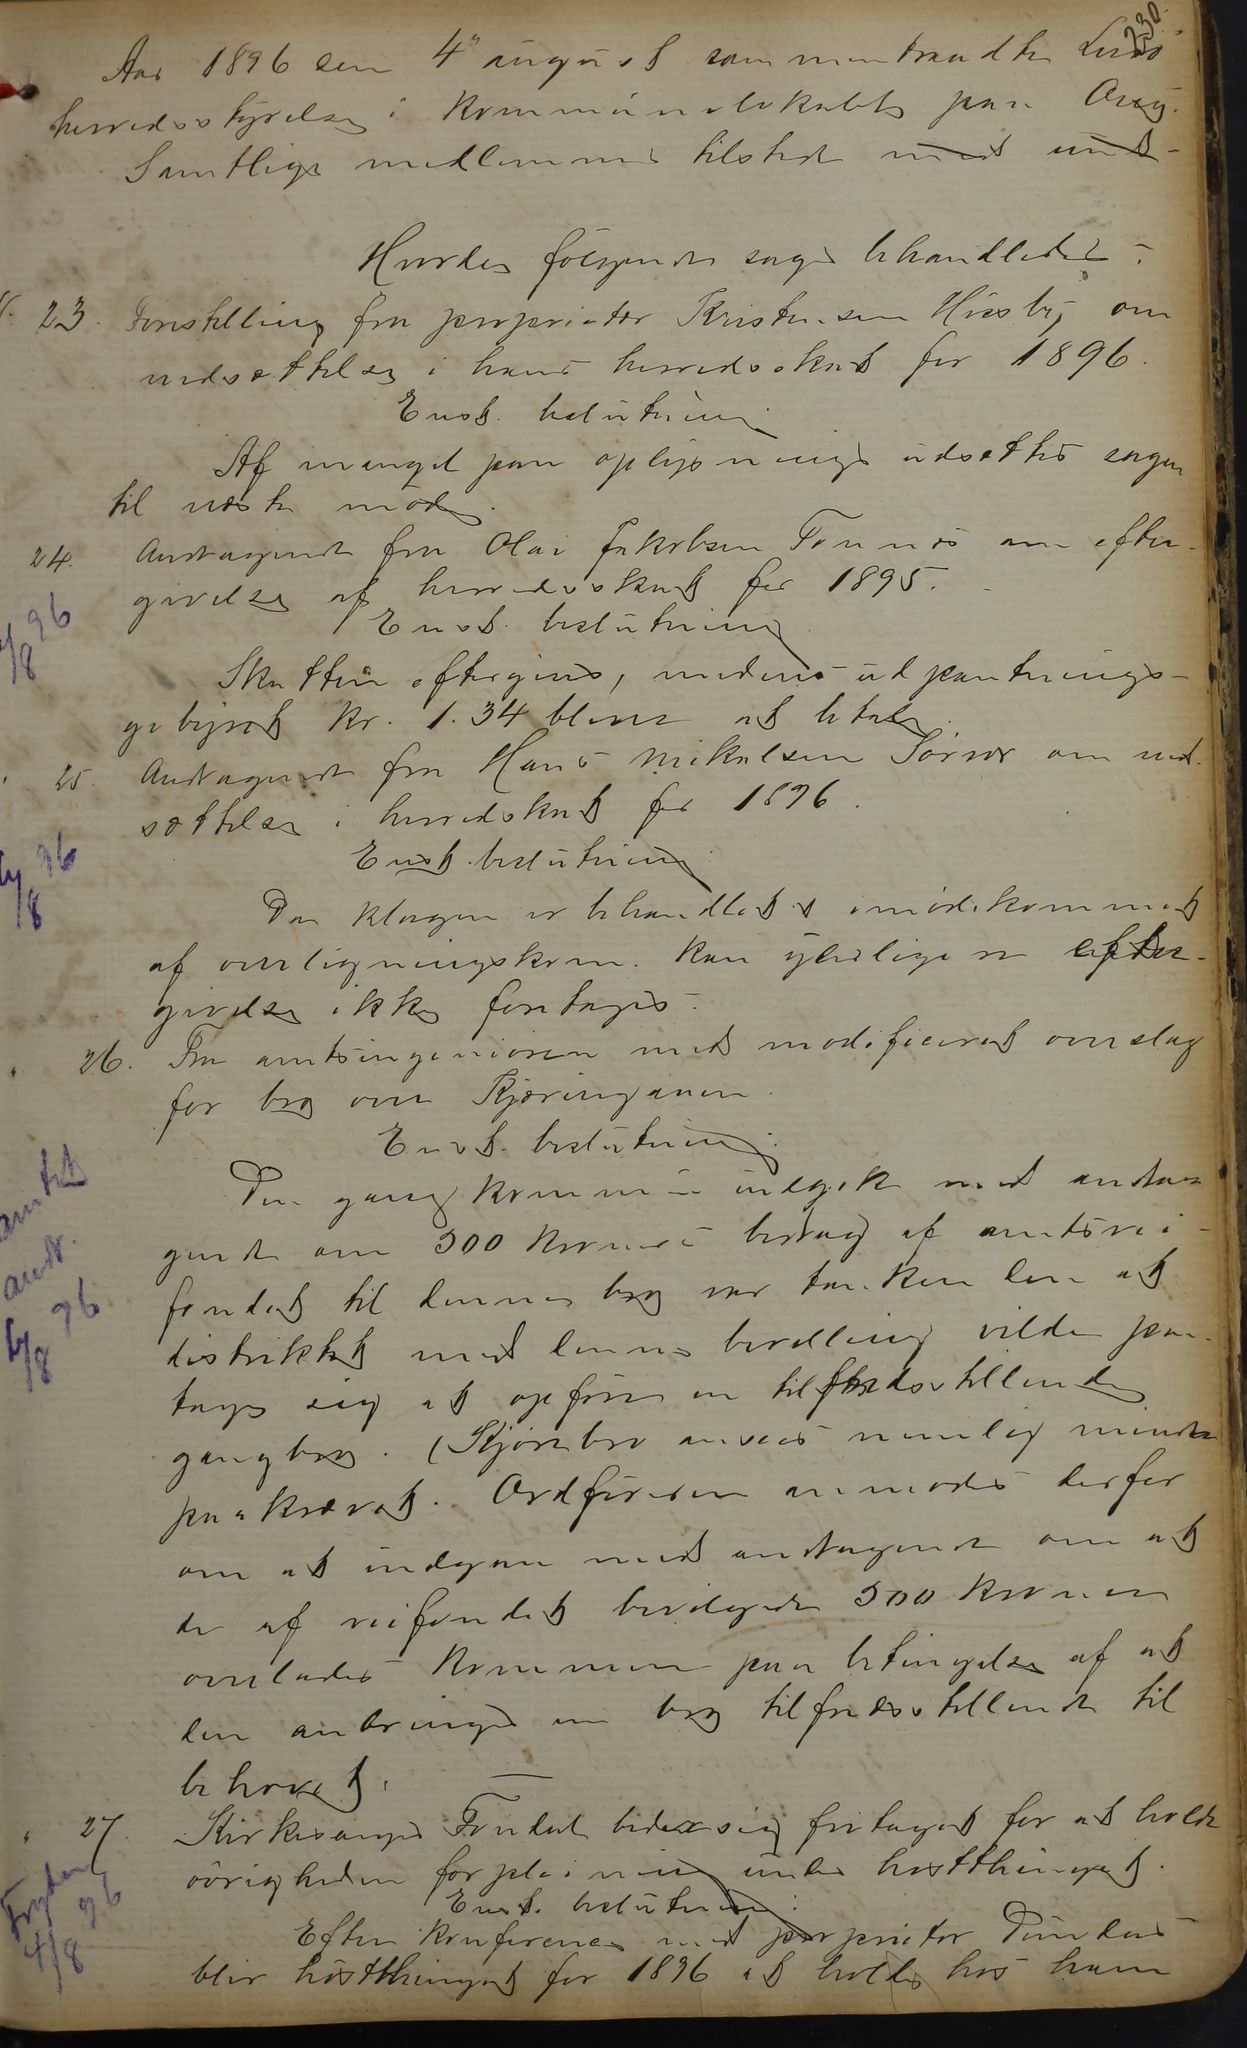 230.
Aar 1896 den 4" august sammentraadte Lurø
herredsstyrelse i kommunelokalet paa Onøy.
Samtlige medlemmer tilstede med und-
Hvorder følgende sager behandledes:
23. Forestilling fra proprietær Kristensen Husby om
nedsættelse i hans herredsskat for 1896.
Enst. beslutning:
Af mangel paa oplysninger udsættes sagen
til næste møde.
24. Andragende fra Olai Jakobsen Tonnes om efter-
givelse af herredsskat for 1895.
Enst. beslutning
Skatten eftergives, medens udpantnings-
gebyret kr. 1.34 bliver at betale.
25. Andragende fra Hans Mikalsen Sørnes om ned-
sættelse i herredskat for 1896.
Enst. beslutning:
Da klagen er behandlet & imødekommet
af overligningskom. kan yderligere efter-
givelse ikke foretages.
26. Fra amtsingeniøren med modificeret overslag
for bro over Kjæringaaen.
Enst. beslutning:
Den gang kommunen indgik med andra-
gende om 300 kroners bidrag af amtsvei-
fondet til denne bro var tanken den at
distriktet med denne bevilling vilde paa-
tage sig at opføre en tilfredsstillende
gangbro. (Kjørebro ansees nemlig mindre
paakrævet. Ordføreren anmodes derfor
om at indgaa med andragende om at
de af veifondet bevilgede 300 kroner
overlades kommunen paa betingelse af at
den anbringer en bro tilfredsstillende til
behovet.
amtet
andr.
6/8 96
27. Kirkesanger Fondal beder sig fritaget for at holde
øvrigheden forpleining under høstthinget.
Enst. beslutning:
Efter konference med proprietær Dundas
blir høstthinget for 1896 at holde hos ham
4/8 96